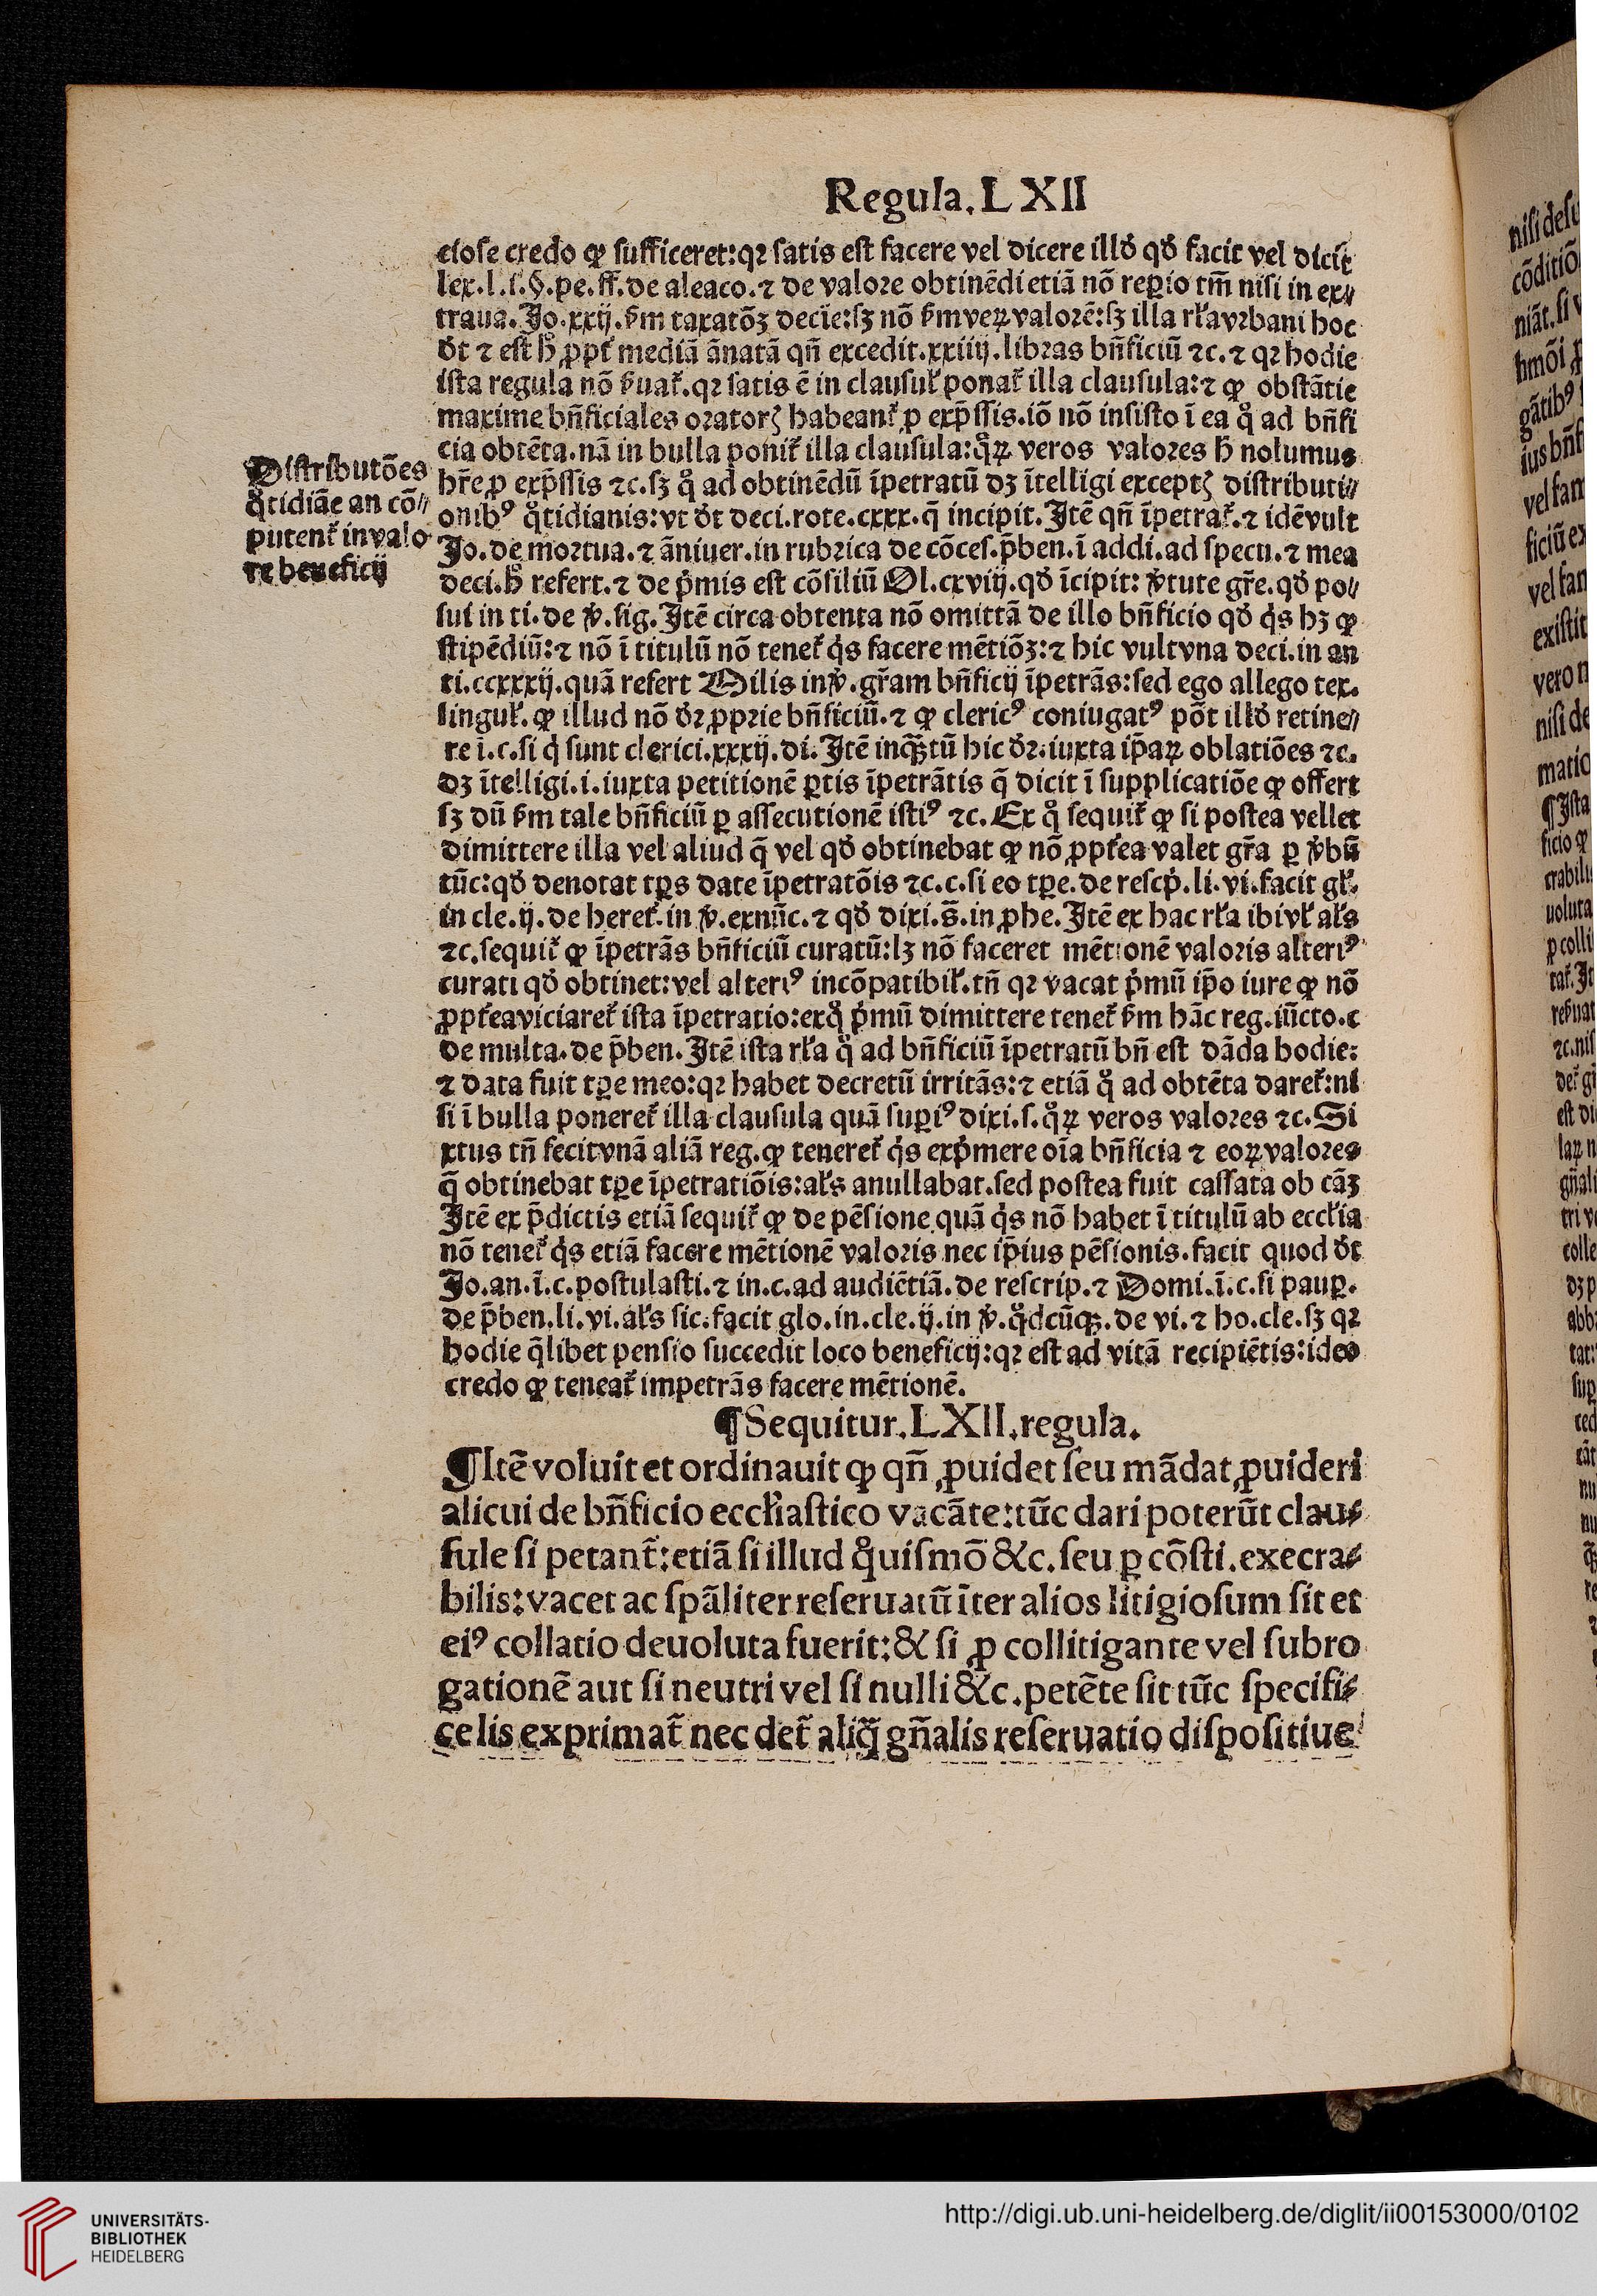 Regula. L XII
ciose credo ꝙ sufficeret: qꝛ satis est facere vel dicere illđ qđ facit vel dicit
lex. l. i. §. pe. ff. de aleaco. ⁊ de valore obtinēdi etiā nō reꝑio tm̄ nisi in ex⸗
traua. Jo. xxij. ẜm taxatōꝫ decie: sꝫ nō ẜm veꝝ valorē: sꝫ illa rl̃a vrbani hoc
đt ⁊ est h̊ ꝓpt̃ mediā ānatā qn̄ excedit. xxiiij. libras bn̄ficiū ⁊c. ⁊ qꝛ hodie
ista regula nō ẜuat̃. qꝛ satis ē in clausul̃ ponat̃ illa clausula: ⁊ ꝙ obstātie
maxime bn̄ficiales oratorꝭ habeant̃ ꝓ exp̄ssis. iō nō insisto ī ea q̊ ad bn̄fi
cia obtēta. nā in bulla ponit̃ illa clausula: q̊ꝝ veros valores h̄ nolumus
Distributōes
q̊tidiāe an cō⸗
putent̃ in valo
re beneficij
hr̄e ꝓ exp̄ssis ⁊c. sꝫ q̊ ad obtinēdū īpetratū dꝫ ītelligi exceptꝭ distributi⸗
onibꝰ q̊tidianis: vt đt deci. rote. cxxx. q̄ incipit. Jtē qn̄ īpetrat̃. ⁊ idē vult
Jo. de mortua. ⁊ āniuer. in rubrica de cōces. p̄ben. ī addi. ad specu. ⁊ mea
deci. h̊ refert. ⁊ de p̍mis est cōsiliū Ol. cxviij. qđ īcipit: v̍tute gr̄e. qđ po⸗
sui in ti. de v̍. sig. Jtē circa obtenta nō omittā de illo bn̄ficio qđ q̍s hꝫ ꝙ
stipēdiū: ⁊ nō ī titulū nō tenet̃ q̍s facere mētiōꝫ: ⁊ hic vult vna deci. in an
ti. ccxxxij. quā refert Milis in v̍. gr̄am bn̄ficij īpetrās: sed ego allego tex.
singul̃. ꝙ illud nō đꝛ ꝓprie bn̄ficiū. ⁊ ꝙ clericꝰ coniugatꝰ pōt illđ retine⸗
re ī. c. si q̍ sunt clerici. xxxij. di. Jtē inqꝫtū hic đꝛ. iuxta ip̄aꝝ oblatiōes ⁊c.
dꝫ ītelligi. i. iuxta petitionē ꝑtis īpetrātis q̄ dicit ī supplicatiōe ꝙ offert
sꝫ dū ẜm tale bn̄ficiū ꝑ assecutionē istiꝰ ⁊c. Ex q̊ sequit̃ ꝙ si postea vellet
dimittere illa vel aliud q̄ vel qđ obtinebat ꝙ nō ꝓpt̃ea valet gr̄a ꝑ v̍bū
tūc: qđ denotat tꝑs date īpetratōis ⁊c. c. si eo tꝑe. de rescp̍. li. vi. facit gl̃.
in cle. ij. de heret̃. in v̍. exnūc. ⁊ qđ dixi. s̄. in ꝓhe. Jtē ex hac rl̃a ibi vl̃ al̃s
⁊c. sequit̃ ꝙ īpetrās bn̄ficiū curatū: lꝫ nō faceret mētionē valoris alteriꝰ
curati qđ obtinet: vel alteriꝰ incōpatibil̃. tn̄ qꝛ vacat p̍mū ip̄o iure ꝙ nō
ꝓpt̃ea viciaret̃ ista īpetratio: ex q̊ p̍mū dimittere tenet̃ ẜm hāc reg. iūcto. c
de multa. de p̄ben. Jtē ista rl̃a q̊ ad bn̄ficiū īpetratū bn̄ est dāda hodie:
⁊ data fuit tꝑe meo: qꝛ habet decretū irritās: ⁊ etiā q̊ ad obtēta daret̃: ni
si ī bulla poneret̃ illa clausula quā supiꝰ dixi. s. q̊ꝝ veros valores ⁊c. Si
xtus tn̄ fecit vnā aliā reg. ꝙ teneret̃ q̍s exp̍mere oīa bn̄ficia ⁊ eoꝝ valores
q̄ obtinebat tꝑe īpetratiōis: al̃s anullabat. sed postea fuit cassata ob cāꝫ
Jtē ex p̄dictis etiā sequit̃ ꝙ de pēsione quā q̍s nō habet ī titulū ab eccl̃ia
nō tenet̃ q̍s etiā facere mētionē valoris nec ip̄ius pēsionis. facit quod đt
Jo. an. ī. c. postulasti. ⁊ in. c. ad audiētiā. de rescrip. ⁊ Domi. ī. c. si pauꝑ.
de p̄ben. li. vi. al̃s sic. facit glo. in. cle. ij. in v̍. q̊dcūqꝫ. de vi. ⁊ ho. cle. sꝫ qꝛ
hodie q̄libet pensio succedit loco beneficij: qꝛ est ad vitā recipiētis: ideo
credo ꝙ teneat̃ impetrās facere mētionē.
¶ Sequitur. LXII. regula.
¶ Itē voluit et ordinauit ꝙ qn̄ ꝓuidet seu mādat ꝓuideri
alicui de bn̄ficio eccl̃iastico vacāte: tūc dari poterūt clau⸗
sule si petant̃: etiā si illud q̊uismō &c. seu ꝑ cōsti. execra⸗
bilis: vacet ac sp̄aliter reseruatū īter alios litigiosum sit et
eiꝰ collatio deuoluta fuerit: & si ꝓ collitigante vel subro
gationē aut si neutri vel si nulli &c. petēte sit tūc specifi⸗
ce lis exprimat̃ nec det̃ aliq̄ gn̄alis reseruatio dispositiue
UNIVERSITÄTS-
BIBLIOTHEK
HEIDELBERG
http://digi.ub.uni-heidelberg.de/diglit/ii00153000/0102